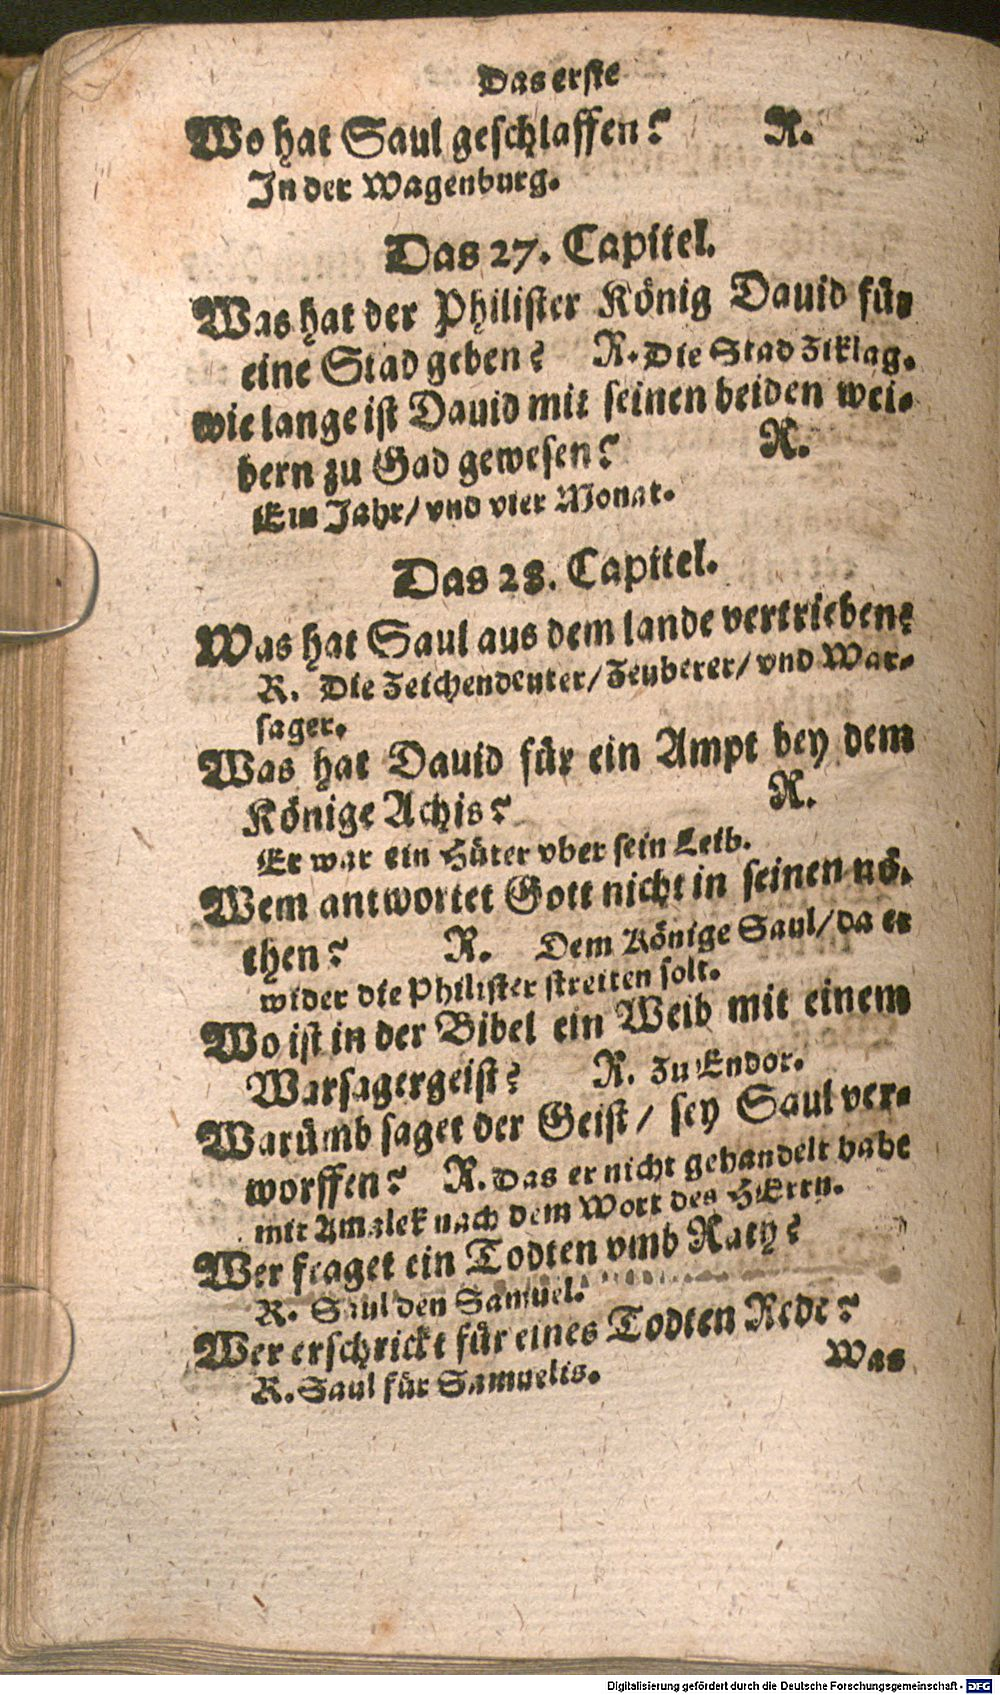 Das erste
Wo hat Saul geschlaffen? R.
In der Wagenburg.
Das 27. Capitel.
Was hat der Philister König Dauid für
eine Stad geben? R. Die Stad Ziklag.
wie lange ist Dauid mit seinen beiden wei-
bern zu Gad gewesen? R.
Ein Jahr/ vnd vier Monat.
Das 28. Capittel.
Was hat Saul aus dem lande vertrieben?
R. Die Zeichendeuter/ Zeuberer/ vnd War-
sager.
Was hat Dauid für ein Ampt bey dem
Könige Achis? R.
Er war ein Hüter vber sein Leib.
Wem antwortet Gott nicht in seinen nö-
then? R. Dem Könige Saul/ da er
wider die Philister streiten solt.
Wo ist in der Bibel ein Weib mit einem
Warsagergeist? R. Zu Endor.
Warümb saget der Geist/ sey Saul ver-
worffen? R. Das er nicht gehandelt habe
mit Amalek nach dem Wort des HErrn.
Wer fraget ein Todten vmb Rath?
R. Saul den Samuel.
Wer erschrickt für eines Todten Rede?
R. Saul für Samuelis.
Was
Digitalisierung gefördert durch die Deutsche Forschungsgemeinschaft - DFG